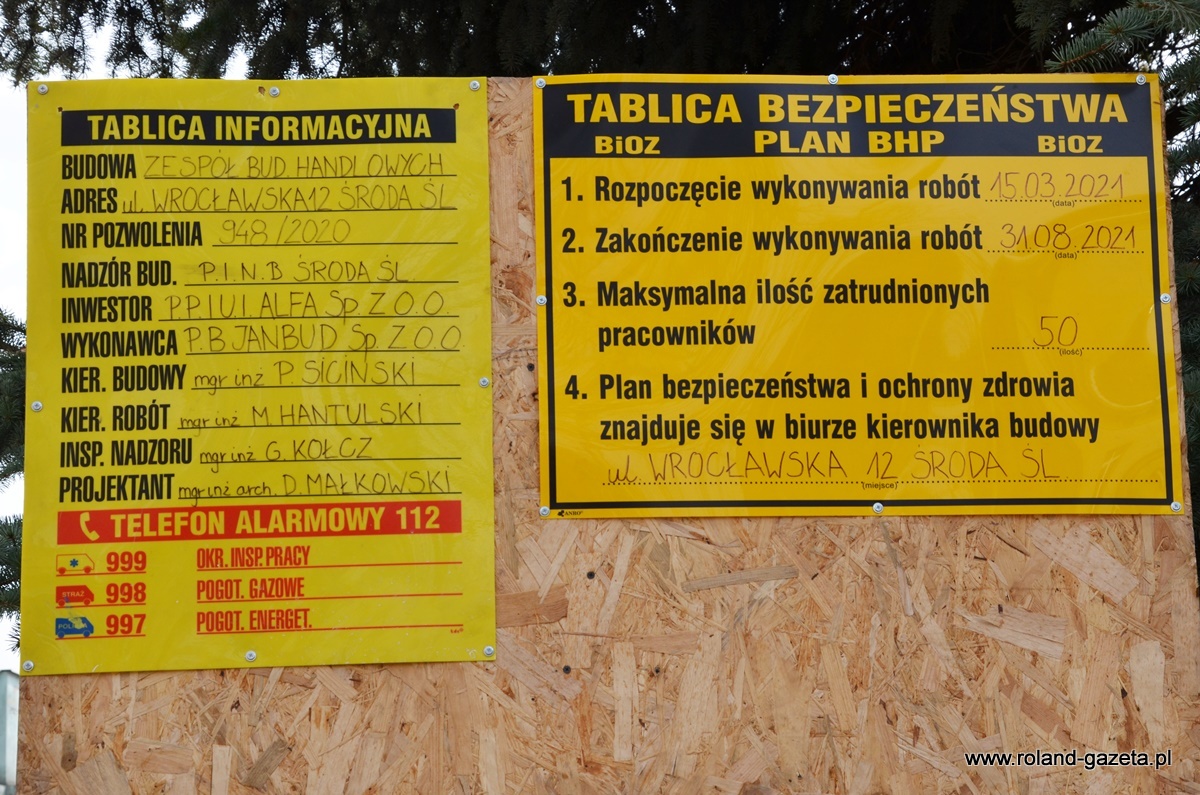 TABLICA INFORMACYJNA
BUDOWA ZESPÓŁ BUD. HANDLOWYCH
ADRES ul. WROCŁAWSKA 12 ŚRODA ŚL
NR POZWOLENIA 948/2020
NADZÓR BUD. P.I.N.B ŚRODA ŚL
INWESTOR P.P.I.U.I. ALFA Sp. Z O.O.
WYKONAWCA P.B JANBUD Sp. Z O.O
KIER. BUDOWY mgr inż P. SICIŃSKI
KIER. ROBÓT mgr inż M. HANTULSKI
INSP. NADZORU mgr inż G. KOŁCZ
PROJEKTANT mgr inż arch. D. MAŁKOWSKI
TELEFON ALARMOWY 112
999 OKR. INSP. PRACY
STRAŻ 998 POGOT. GAZOWE
POLICJA 997 POGOT. ENERGET.
TABLICA BEZPIECZEŃSTWA
BiOZ PLAN BHP BiOZ
1. Rozpoczęcie wykonywania robót 15.03.2021
(data)
2. Zakończenie wykonywania robót 31.08.2021
(data)
3. Maksymalna ilość zatrudnionych
pracowników 50
(ilość)
4. Plan bezpieczeństwa i ochrony zdrowia
znajduje się w biurze kierownika budowy
ul. WROCŁAWSKA 12 ŚRODA ŚL
(miejsce)
www.roland-gazeta.pl